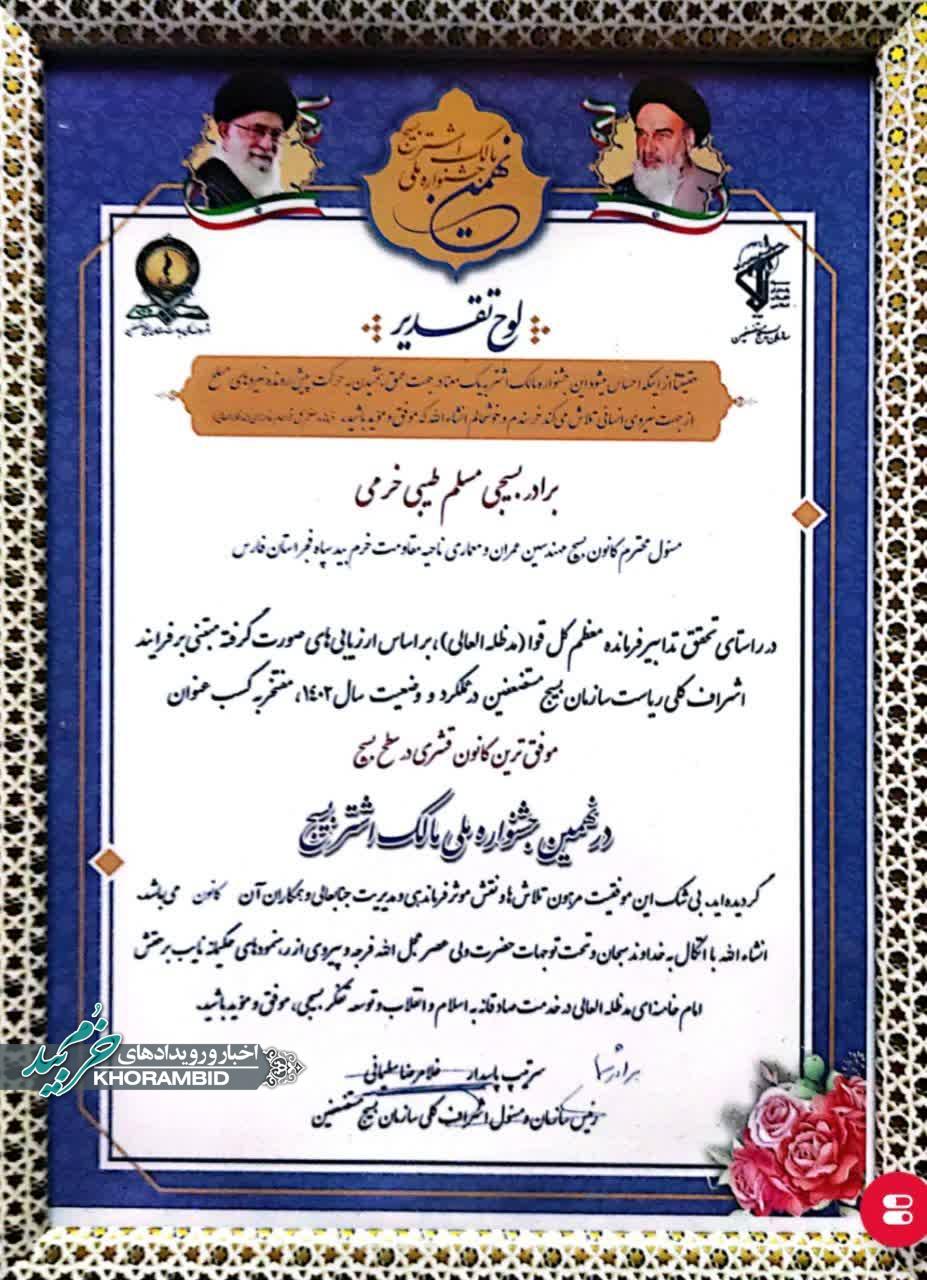 نهمین
جشنواره ملی
مالک اشتر بسیج
سازمان بسیج مستضعفین
لوح تقدیر
حقیقتا از اینکه احساس میشود این جشنواره مالک اشتر به یک معنا در جهت عمق بخشیدن به حرکت پیش رونده نیروهای مسلح
از جهت نیروی انسانی تلاش می‌کند خرسندم و خوشحالم انشاءالله که موفق و موید باشید.
برادر بسیجی مسلم طیبی خرمی
مسئول محترم کانون بسیج مهندسین عمران و معماری ناحیه مقاومت خرم بید سپاه فجر استان فارس
در راستای تحقق تدابیر فرمانده معظم کل قوا (مدظله العالی)، بر اساس ارزیابی‌های صورت گرفته مبتنی بر فرایند
اشراف کلی ریاست سازمان بسیج مستضعفین در عملکرد و وضعیت سال ۱۴۰۲، مفتخر به کسب عنوان
موفق ترین کانون قشری در سطح بسیج
در نهمین جشنواره ملی مالک اشتر بسیج
گردیده‌اید. بی شک این موفقیت مرهون تلاش‌ها و نقش موثر فرماندهی و مدیریت جنابعالی و همکاران آن کانون می باشد.
انشاءالله با اتکال به خداوند سبحان و تحت توجهات حضرت ولی عصر عجل الله فرجه و پیروی از رهنمودهای حکیمانه نایب برحقش
امام خامنه‌ای مدظله العالی در خدمت صادقانه به اسلام و انقلاب و توسعه تفکر بسیجی، موفق و موید باشید.
برادر شما
سرتیپ پاسدار غلامرضا سلیمانی
رئیس سازمان و مسئول اشراف کلی سازمان بسیج مستضعفین
اخبار و رویدادهای
خرم بید
KHORAMBID